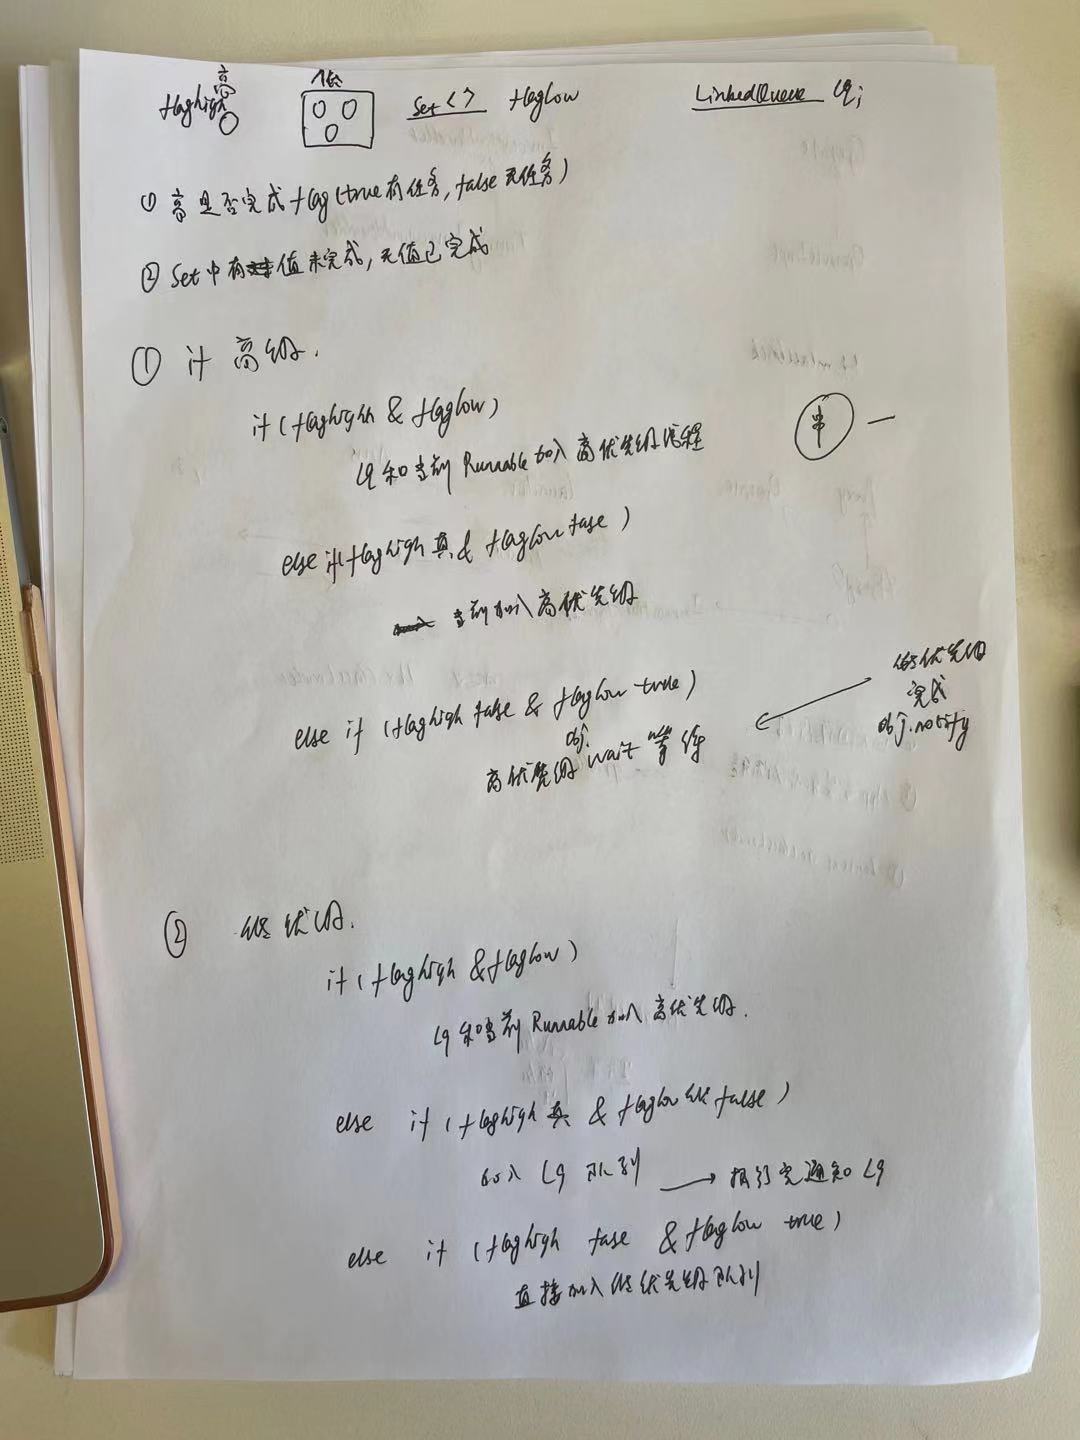 高
低
flaghigh
Set<> flaglow
LinkedQueue Lq;
① 高是否完成flag(true有任务,false无任务)
② Set中有值未完成,无值已完成
① if 高级.
if(flaghigh & flaglow)
Lq和当前Runnable加入高优先级
串
else if(flaghigh真& flaglow fase)
当前加入高优先级
else if (flaghigh false & flaglow true)
obj.
高优先级 wait 等待
低优先级
完成
obj.notify
② 低优级.
if(flaghigh &flaglow)
Lq和当前Runnable加入高优先级.
else if (flaghigh真 & flaglow false)
加入Lq队列 → 执行完通知Lq
else if (flaghigh fase & flaglow true)
直接加入低优先级队列